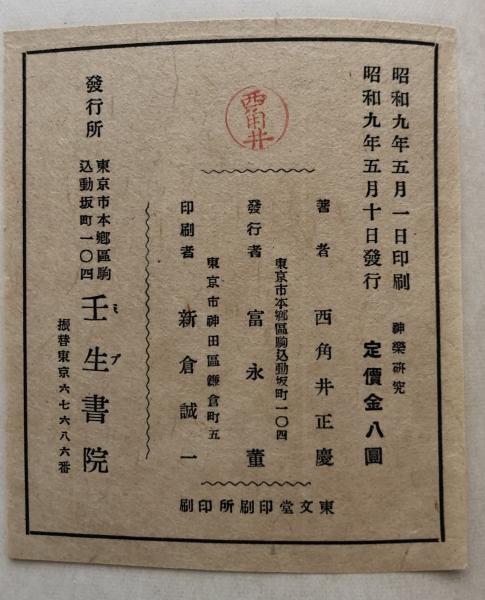 昭和九年五月一日印刷
昭和九年五月十日發行
神樂研究
定價金八圓
西角井
著者 西角井正慶
東京市本鄕區駒込動坂町一〇四
發行者 富永董
東京市神田區鎌倉町五
印刷者 新倉誠一
東文堂印刷所印刷
發行所
東京市本鄕區駒
込動坂町一〇四
壬生書院
ミブ
振替東京六七六八六番